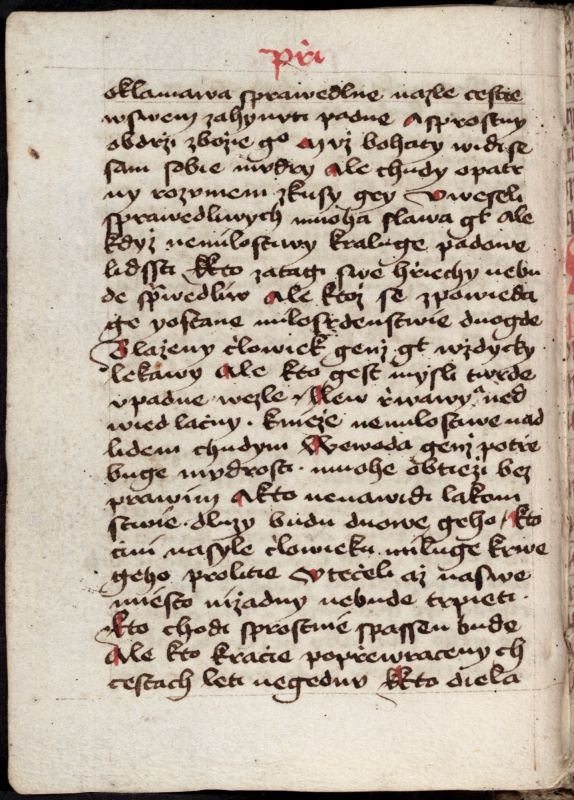 při
oklamawa sprawedlne nazle cestie
wswem zahynuti padne Asprostny
obdrzi zbozie g° Muż bohaty widise
sam sobie mudry Ale chudy opatr
ny rozumem zkusy gey Vweseli
sprawedliwych mnoha slawa gt Ale
kdyż nemilostiwy kraluge padowe
lidssti Kto zatagi swe hřiechy nebu
de Ale ktoż se zpowieda
ge postane milosrdenstwie dnogde
Blażeny člowiek genż gt wzdycky
lekawy Ale kto gest mysli twrde
vpadne wezle Lew řwawy a ned
wied lačny knieże nemilostiwe nad
lidem chudym Wewoda genż potře
buge mudrosti mnohe obtieżi bez
prawim Akto nenawidi lakom
stwie dluzy budu dnowe geho Kto
čini nasyle člowieku miluge krwe
geho prolitie Vtečeli aż naswe
miesto niżadny nebude trpieti
Kto chodi sprostnie spassen bude
Ale kto kračie popřewraceny ch
cestach leti negednu Kto diela